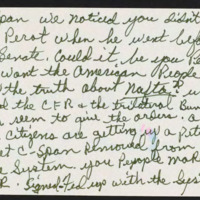 pan we noticed you didn't
Perot when he went bef
Senate. Could it be you Pe
Want the American People
the truth about Nafta? W
d the CFR & the trilateral Bun
seem to give the orders. a
Citizens are getting up a Peti
et C-Span removed from
e System you Pepople mak
Signed-Fed up with the Sys